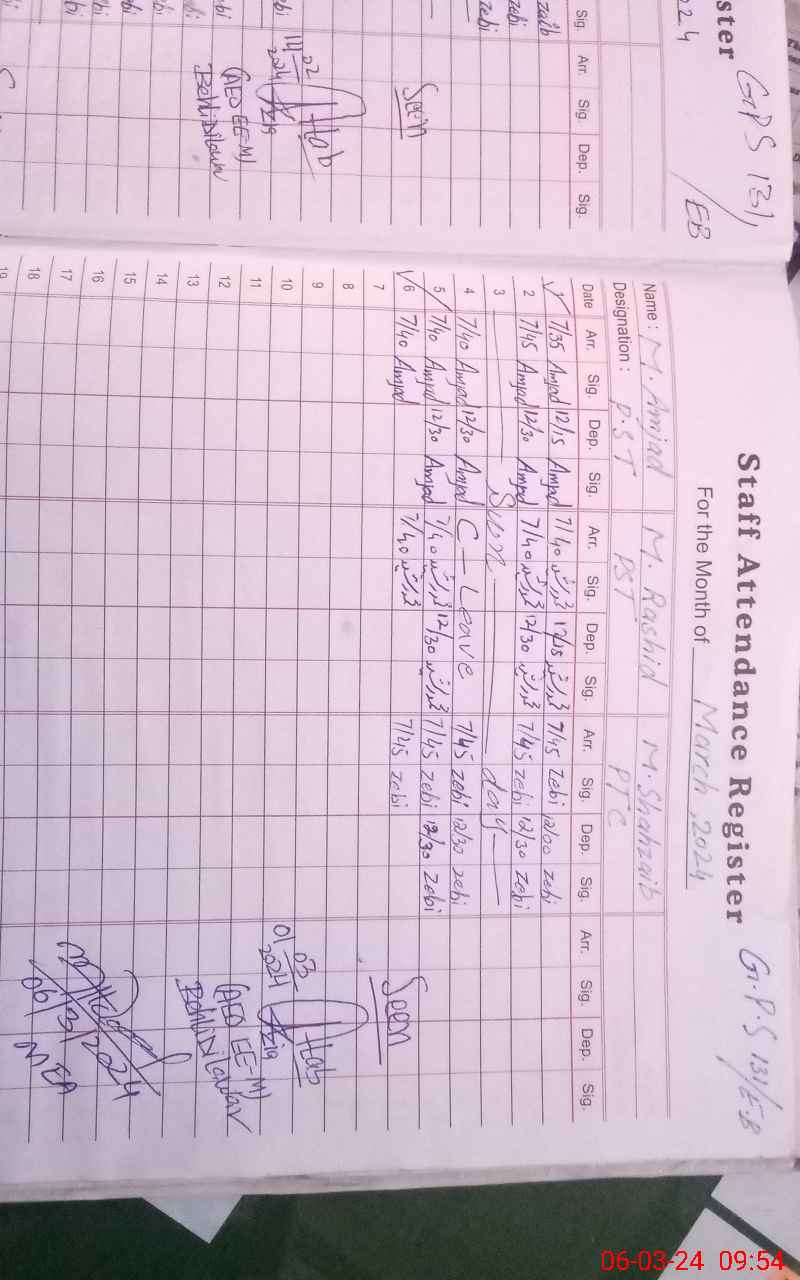 Staff Attendance Register G.P.S 131/E.B
For the Month of March, 2024
Name : M. Amjad M. Rashid M. Shahzaib
Designation : P.S.T PST PTC
Date Arr. Sig. Dep. Sig. Arr. Sig. Dep. Sig. Arr. Sig. Dep. Sig. Arr. Sig. Dep. Sig.
1 7/35 Amjad 12/15 Amjad 7/40 12/15 7/45 zebi 12/00 zebi
2 7/45 Amjad 12/30 Amjad 7/40 12/30 7/45 zebi 12/30 zebi
3 Sun day
4 7/40 Amjad 12/30 Amjad C - Leave 7/45 zebi 12/30 zebi
5 7/40 Amjad 12/30 Amjad 7/40 12/30 7/45 zebi 12/30 zebi
6 7/40 Amjad 7/40 7/45 zebi
7
8
9
10
11
12
13
14
15
16
17
18
19
Seen
Aftab
Zia
01 03 2024
(AEO EE-M)
06/03/2024
MEA
ster GPS 131,
/EB
Sig. Arr. Sig. Dep. Sig.
zaib
zebi
zebi
Seen
Aftab
Zia
02 2024
(AEO EE-M)
06-03-24 09:54